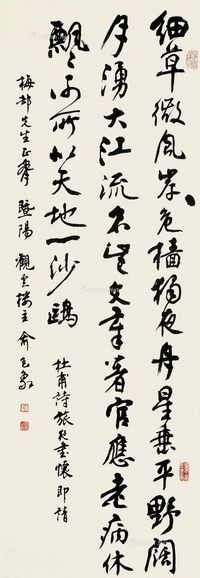 細草微風岸危檣獨夜舟星垂平野闊
月湧大江流名豈文章著官應老病休
飄〻何所似天地一沙鷗
杜甫詩旅夜書懷即請
梅邨先生正 暨陽 觀雲樓主 俞